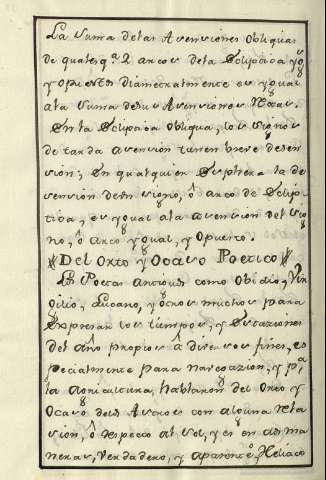 La suma delas Avenciones Obliquas
de qualesq.ª 2 arcos dela Eclipsica yg.
y opuestos diametralmente es ygual
ala suma desus Avenciones Rectas.
En la Eclipsica Obliqua, los signos
de tarda avencion tienen breve desen
sion; En qualquier Esphera la de
sencion de un signo, ô arco de Eclip
tica, es ygual ala avencion del sig
no, ô arco ygual, y Opuesto.
Del Orto y Ocaso Poetico
Los Poetas Antiguos como Obidio, Vir
gilio, Lucano, y otros muchos para
Expresar los tiempos, y Estaziones
del año propios â diversos fines, es
pecialmente para navegazion, y p.ª
la agricultura, hablaron del Orto y
Ocaso delos Astros con alguna rela
sion, ô respecto al sol, y es en dos ma
neras, verdadero, y aparente, ô Heliaco